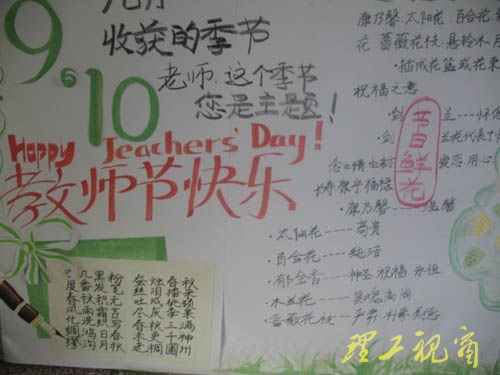 九月
收获的季节
9.10
老师,这个季节
您是主题!
Happy Teachers' Day!
教师节快乐
几度春风化绸缪
几番秋雨洗鸿沟
黑发积霜织日月
粉笔无言写春秋
蚕丝吐尽春未老
烛泪成灰秋更稠
春播桃李三千圃
秋来硕果满神州
康乃馨、太阳花、百合花
花、蔷薇花枝、悬铃木
·插成花篮或花束
祝福之意.
·剑兰---怀
·剑兰花代表了
念之情也 爱恋.用心
长寿.康宁.福禄
节日鲜花
·康乃馨-----温馨
·太阳花-----高贵
·百合花-----纯洁
·郁金香----神圣.祝福.永恒
·木兰花----灵魂高尚
·蔷薇花枝---严肃.朴素.美德
理工视窗